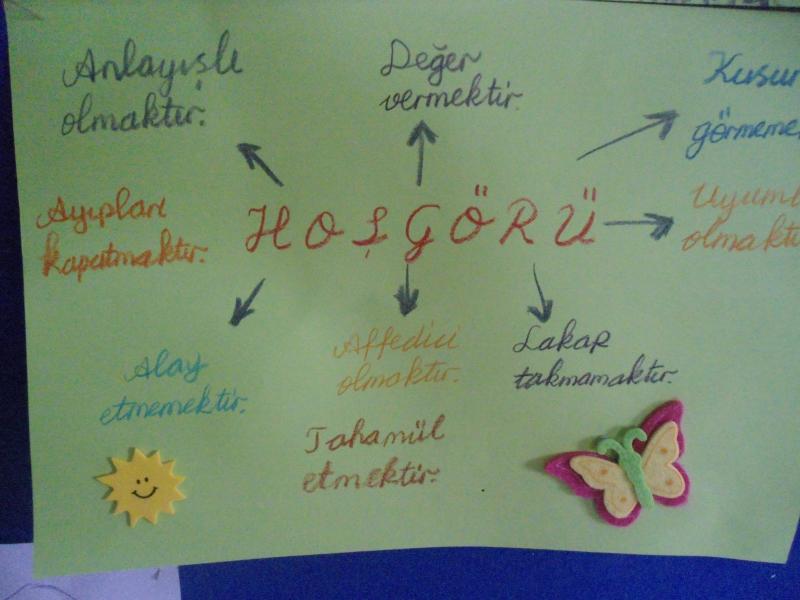 Anlayışlı
olmaktır.
Değer
vermektir.
Kusur
görmeme
Ayıpları
kapatmaktır.
HOŞGÖRÜ
Uyuml
olmaktı
Alay
etmemektir.
Affedici
olmaktır.
Lakap
takmamaktır.
Tahamül
etmektir.